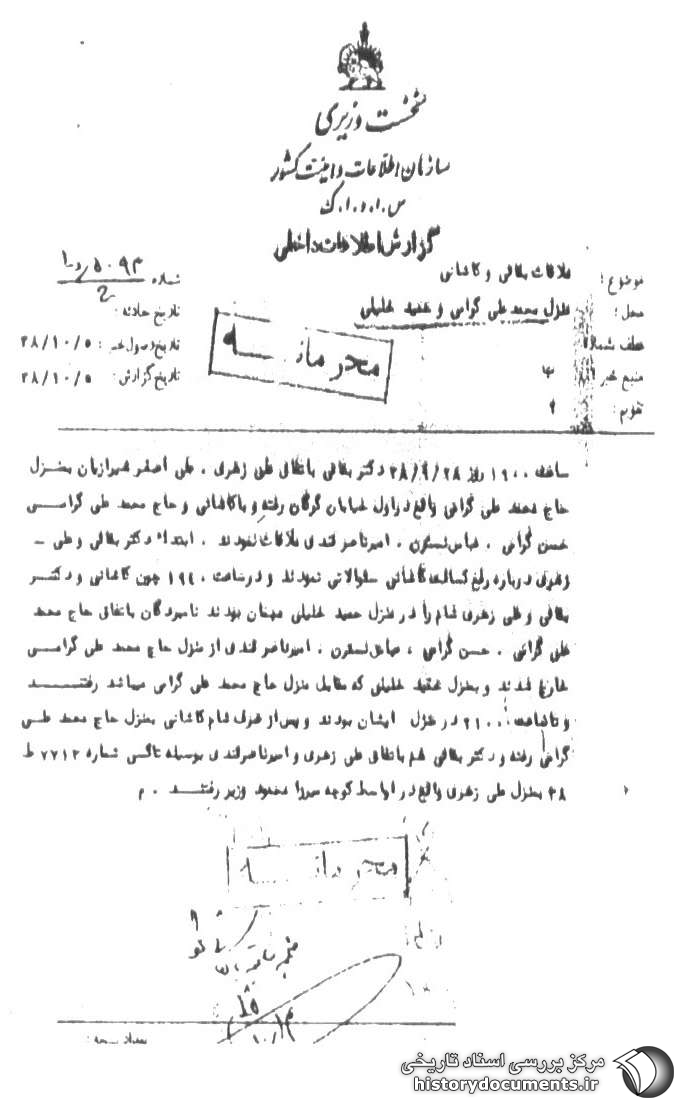 نخست وزیری
سازمان اطلاعات و امنیت کشور
س.ا.و.ا.ک
گزارش اطلاعات داخلی
موضوع: ملاقات بقائی و کاشانی
محل: منزل محمد علی گرامی و حمید خلیلی
عطف شماره
منبع خبر
تقویم:
شماره
تاریخ حادثه:
تاریخ وصول خبر: ۳۸/۱۰/۵
تاریخ گزارش: ۳۸/۱۰/۵
محرمانه
ساعت ۱۹۰۰ روز ۳۸/۹/۲۸ دکتر بقائی باتفاق علی زهری ، علی اصغر شیرازیان بمنزل
حاج محمد علی گرامی واقع در اول خیابان گرگان رفته و با کاشانی و حاج محمد علی گرامی
حسن گرامی ، عباس نسترن ، امیرناصر قندی ملاقات نمودند . ابتداء دکتر بقائی و علی -
زهری درباره رفع کسالت کاشانی سئوالاتی نمودند و در ساعت چون کاشانی و دکتر
بقائی و علی زهری شام را در منزل حمید خلیلی میهمان بودند نامبردگان باتفاق حاج محمد
علی گرامی . حسن گرامی ، نسترن ، امیرناصر قندی از منزل حاج محمد علی گرامی
خارج شدند و بمنزل خلیلی که مقابل منزل حاج محمد علی گرامی میباشد رفتند
و تا ساعت ۲۱۰۰ در منزل ایشان بودند و پس از صرف شام کاشانی بمنزل حاج محمد علی
گرامی رفته و دکتر بقائی هم باتفاق علی زهری و امیرناصر قندی بوسیله تاکسی شماره ۷۷۱۲ ط
۳۸ بمنزل علی زهری واقع در اواسط کوچه میرزا محمود وزیر رفتند . م
محرمانه
تعداد نسخه:
مرکز بررسی اسناد تاریخی
historydocuments.ir